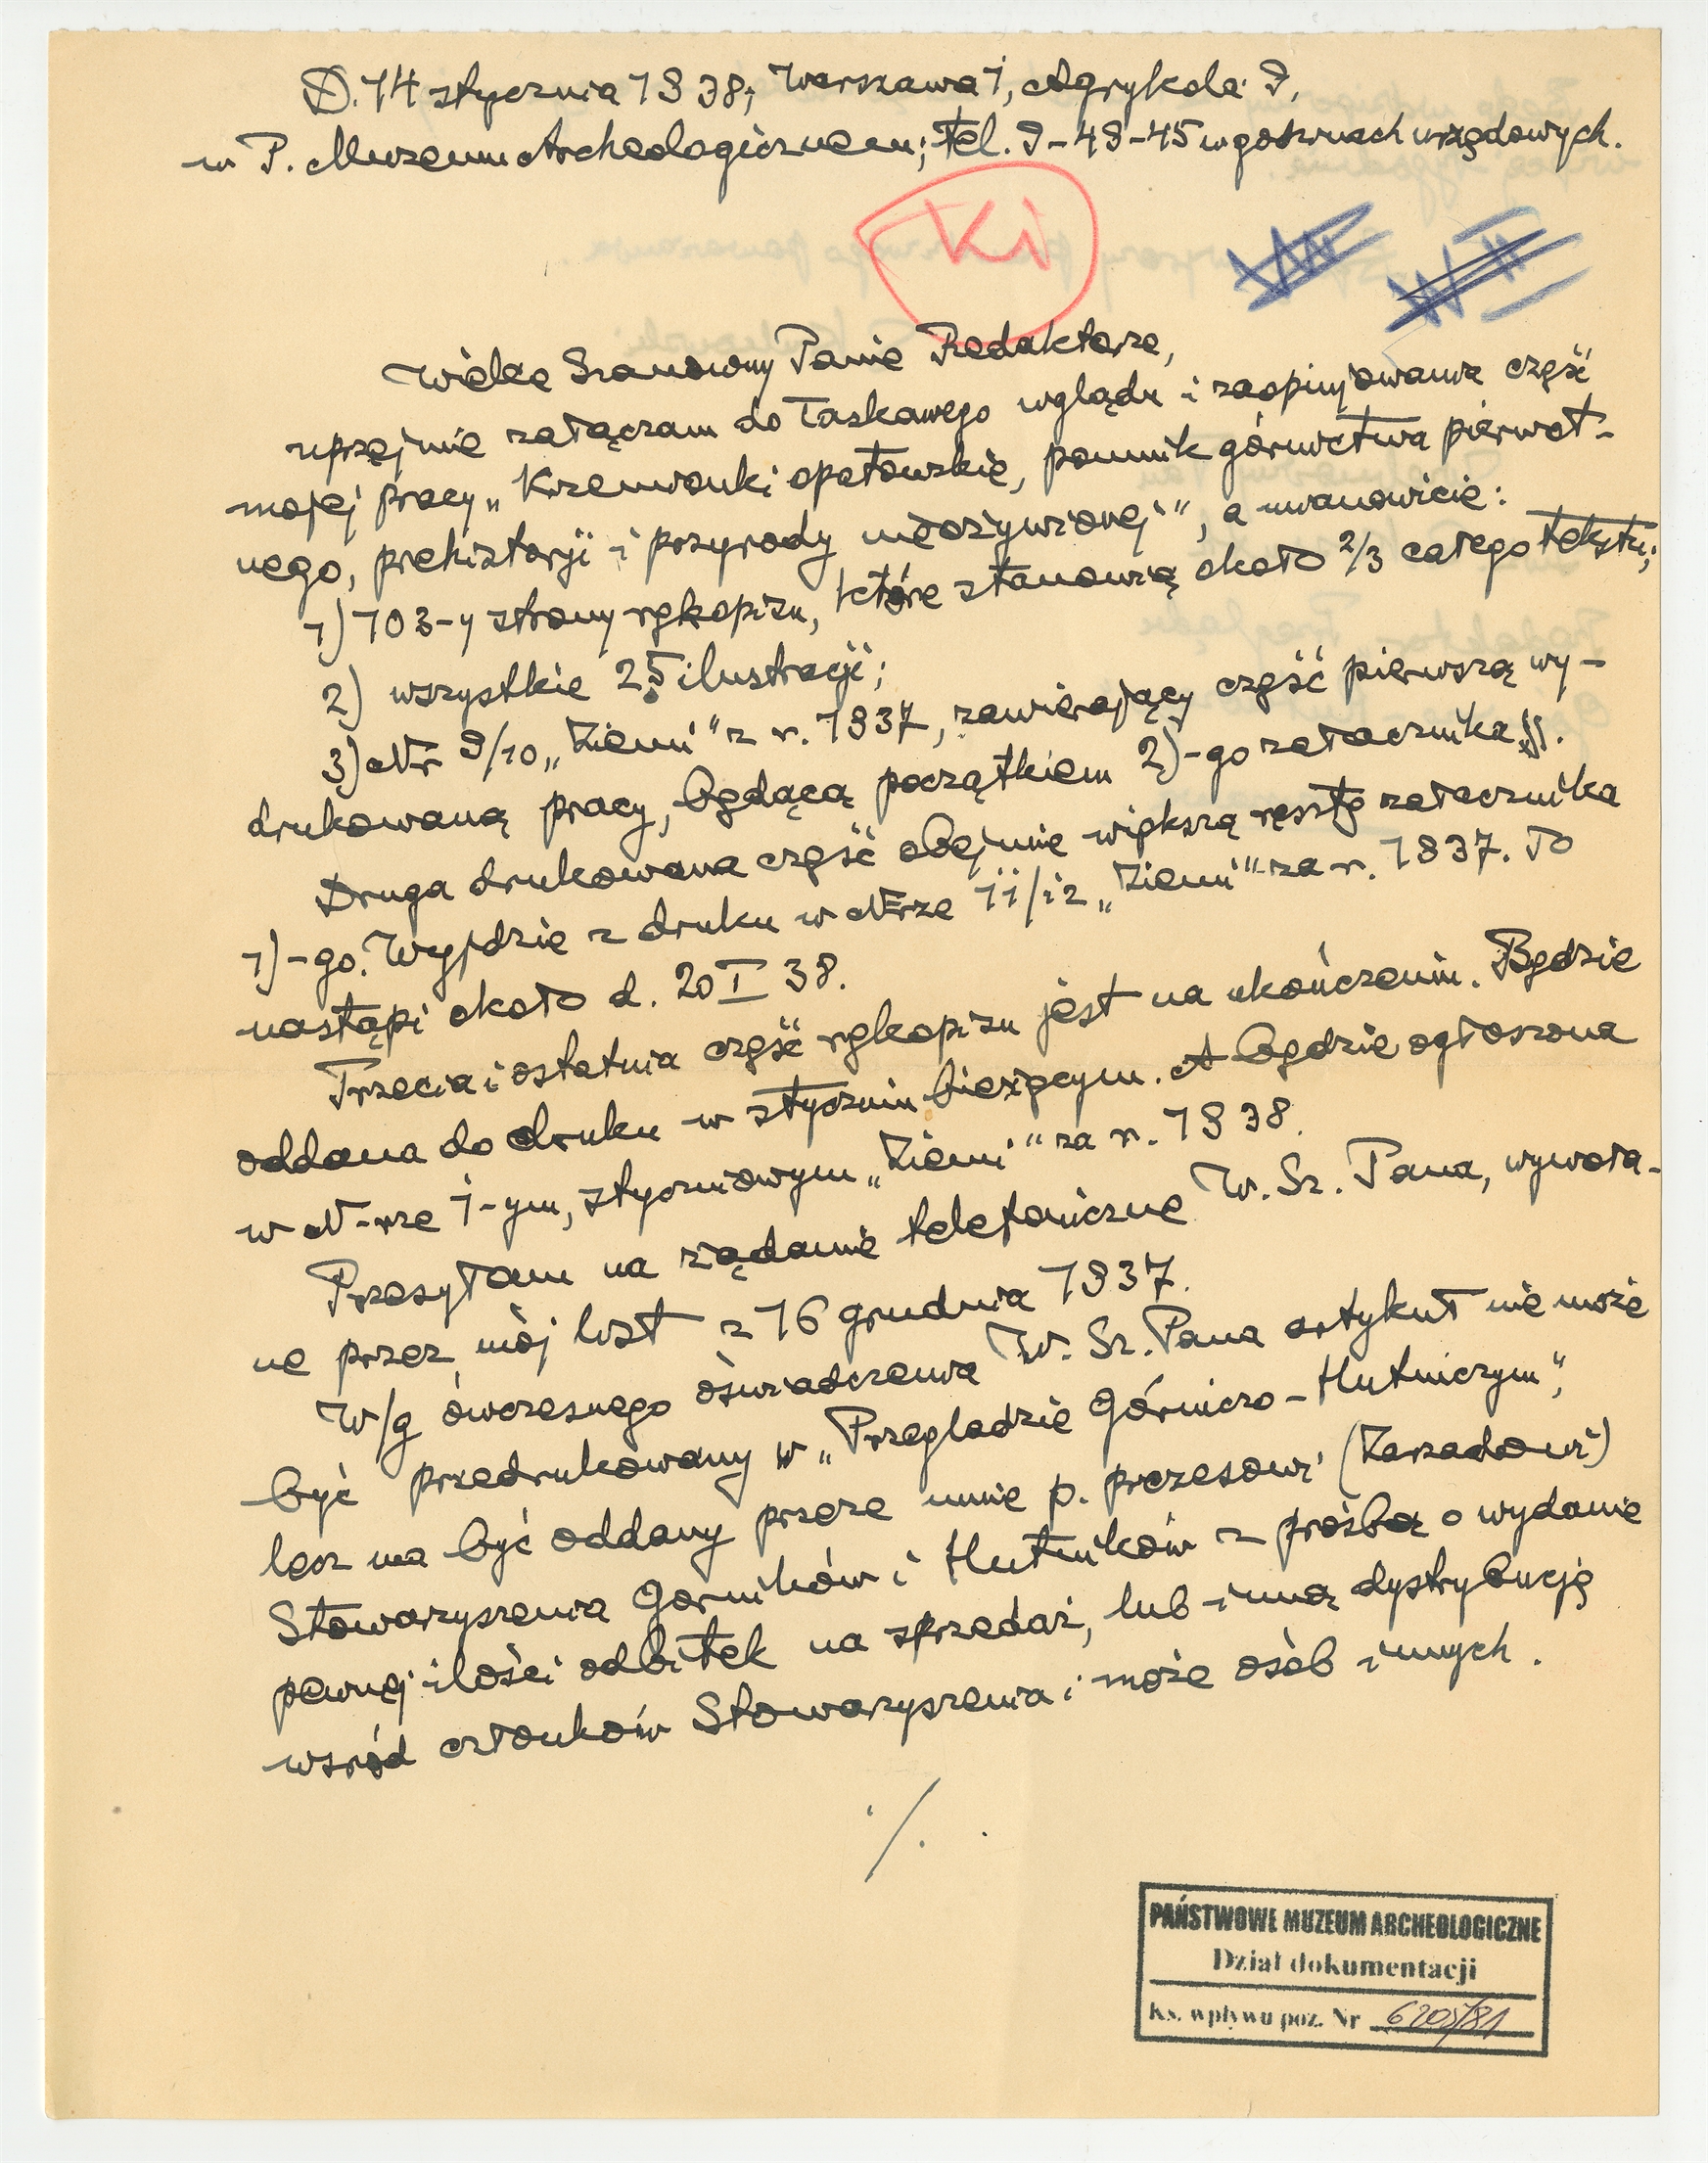 D. 14 stycznia 1938; Warszawa 1, Agrykola 9,
w P. Muzeum Archeologicznem; tel. 9-49-45 w godzinach urzędowych.
Ki
Wielce Szanowny Panie Redaktorze,
uprzejmie załączam do łaskawego wglądu i zaopinjowania część
mojej pracy „Krzemionki opatowskie, pomnik górnictwa pierwot-
nego, prehistorji i przyrody nieożywionej”, a mianowicie:
1) 103-y strony rękopisu, które stanowią około 2/3 całego tekstu;
2) wszystkie 25 ilustracji;
3) Nr 9/10 „Ziemi” z r. 1937, zawierający część pierwszą wy-
drukowaną pracy, będącą początkiem 2)-go załącznika.
Druga drukowana część obejmie większą resztę załącznika
1)-go. Wyjdzie z druku w Nrze 11/12 „Ziemi” za r. 1937. To
nastąpi około d. 20 I 38.
Trzecia i ostatnia część rękopisu jest na ukończeniu. Będzie
oddana do druku w styczniu bieżącym. A będzie ogłoszona
w N-rze 1-ym, styczniowym „Ziemi” za r. 1938.
Przesyłam na żądanie telefoniczne W. Sz. Pana, wywoła-
ne przez mój list z 16 grudnia 1937.
W/g ówczesnego oświadczenia W. Sz. Pana artykuł nie może
być przedrukowany w „Przeglądzie Górniczo-Hutniczym”,
lecz ma być oddany przeze mnie p. prezesowi (Zarządowi)
Stowarzyszenia Górników i Hutników z prośbą o wydanie
pewnej ilości odbitek na sprzedaż, lub inną dystrybucję
wśród członków Stowarzyszenia i może osób innych.
./.
PAŃSTWOWE MUZEUM ARCHEOLOGICZNE
Dział dokumentacji
Ks. wpływu poz. Nr 6205/81